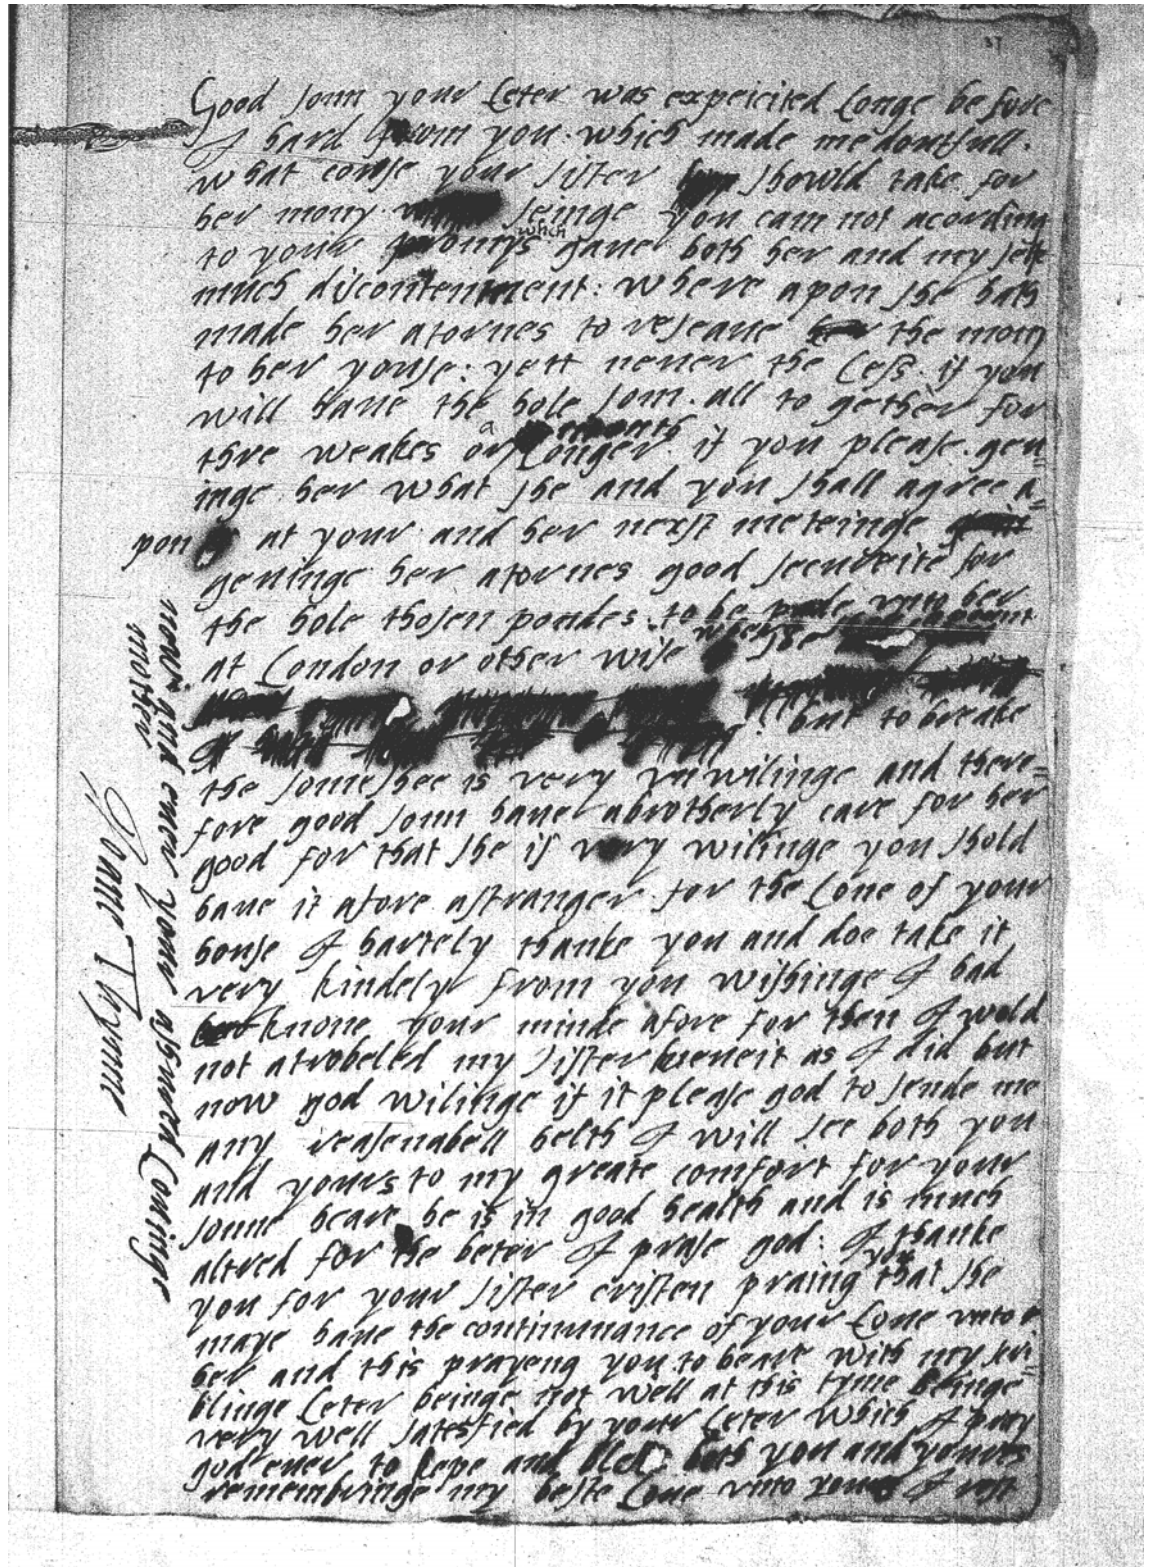 37
Good sonn your Leter was expeicited Longe be fore
I hard from you. which made me doutfull.
what corse your sister should take for
her mony seinge you cam not acording
which
to your promys gaue both her and my self
much discontentment: where apon she hath
made her atornes to reseaue the mony
to her youse: yett neuer the Less. if you
will haue the hole som. all to gether for
a
thre weakes or Longer. if you please. geu=
inge her what she and you shall agree a=
pon at your and her nexst meteinge
geuinge her atornes good securite for
the hole thosen poundes. to be pade vnto her
at London or other wise
but to breake
the some shee is very vnwilinge and there=
fore good sonn haue abrotherly care for her
good for that she is very wilinge you shold
haue it afore astranger. for the Lone of your
house I hartely thanke you and doe take it
very kindely from you wishinge I had
knone your minde afore for then I wold
not atrobeled my sister kneueit as I did but
now god wilinge if it please god to sende me
any reasenabell helth I will see both you
and yours to my greate comfort for your
sonne heare he is in good health and is much
altred for the beter I prase god: I thanke
you
you for your sister cristen praing that she
maye haue the continuance of your Loue vnto
her and this prayeng you to beare with my scri=
blinge Leter beinge not well at this tyme beinge
very well satesfied by your Leter which I pray
god euer to kepe and bles both you and youres
remembringe my beste Loue vnto I rest
now and euer your asured Louinge
mother
Joane Thynne